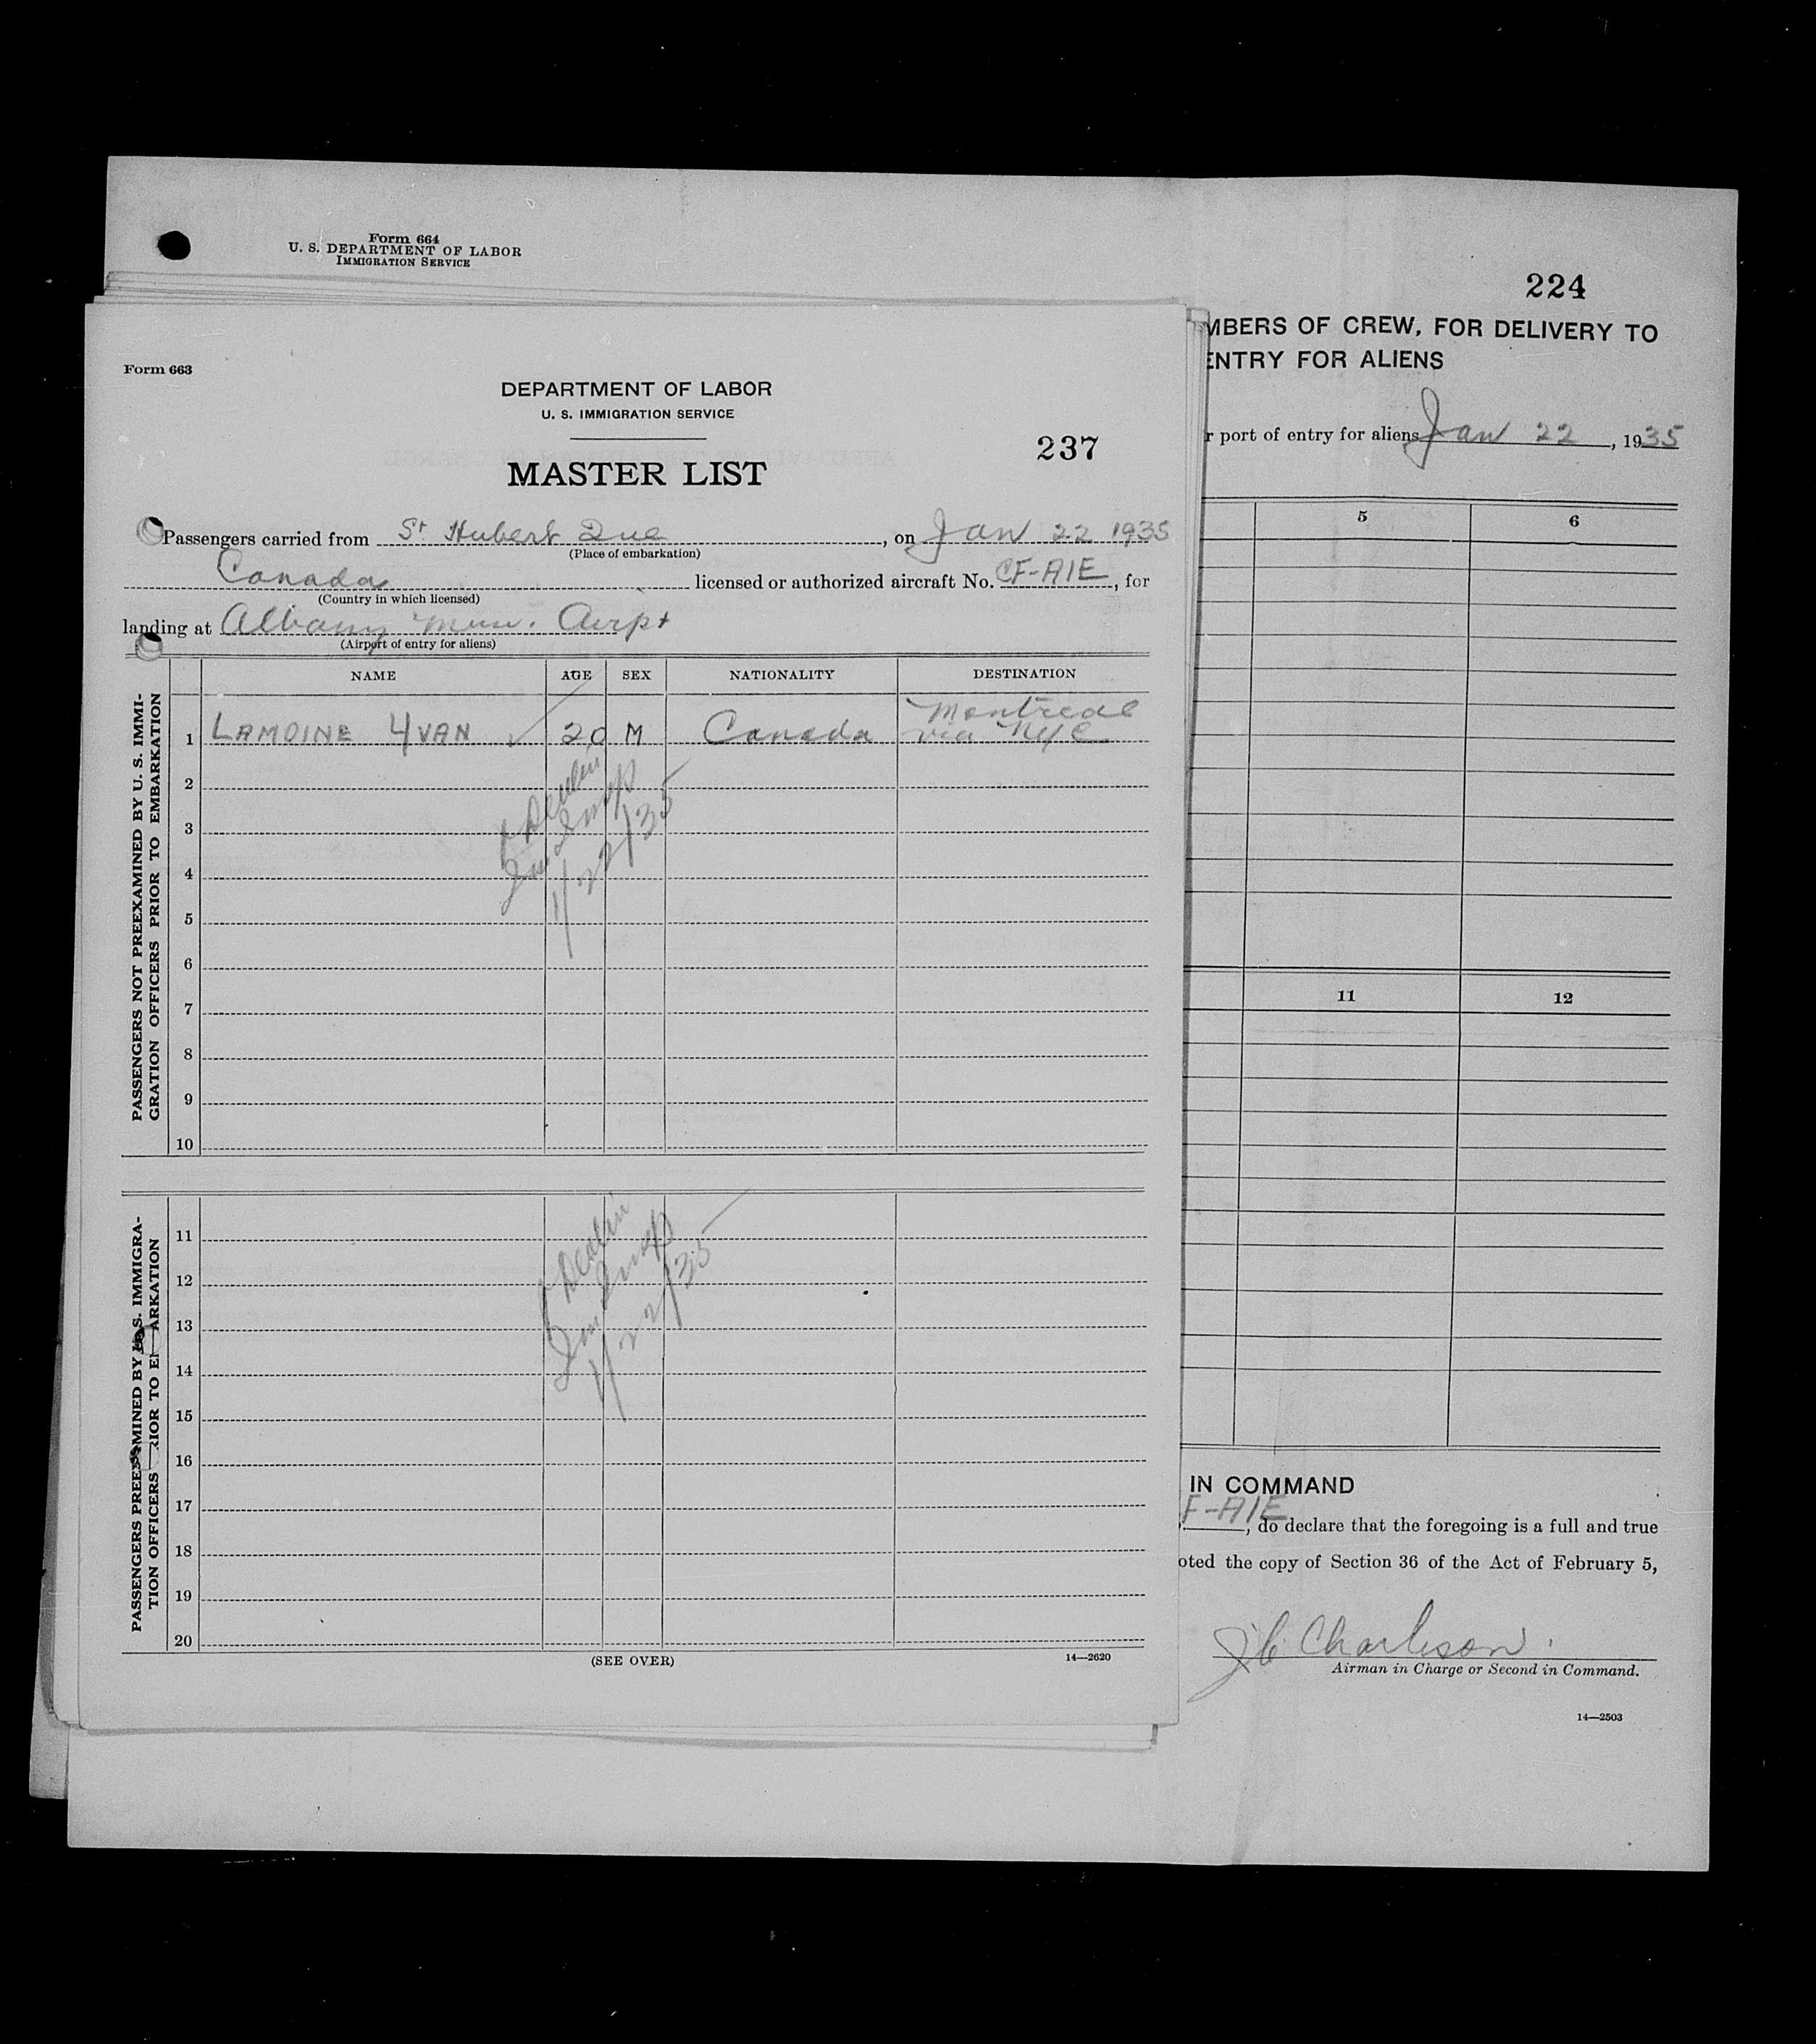 Form 664
U. S. DEPARTMENT OF LABOR
IMMIGRATION SERVICE
224
MBERS OF CREW, FOR DELIVERY TO
ENTRY FOR ALIENS
r port of entry for aliens Jan 22, 1935
5 6
11 12
IN COMMAND
F-AIE, do declare that the foregoing is a full and true
oted the copy of Section 36 of the Act of February 5,
J C Charleson.
Airman in Charge or Second in Command.
14—2503
Form 663
DEPARTMENT OF LABOR
U. S. IMMIGRATION SERVICE
237
MASTER LIST
Passengers carried from St Hubert Que, on Jan 22 1935
(Place of embarkation)
Canada licensed or authorized aircraft No. CF-AIE, for
(Country in which licensed)
landing at Albany Mun. Airpt
(Airport of entry for aliens)
NAME AGE SEX NATIONALITY DESTINATION
PASSENGERS NOT PREEXAMINED BY U. S. IMMI-
GRATION OFFICERS PRIOR TO EMBARKATION
Montreal
1 LAMOINE YVAN 20 M Canada via NYC
2
3
4
5
6
7
8
9
10
Imm Insp
1/22/35
PASSENGERS PREE MINED BY U. S. IMMIGRA-
TION OFFICERS RIOR TO E ARKATION
11
12
13
14
15
16
17
18
19
20
Imm Insp
1/22/35
(SEE OVER)
14—2620